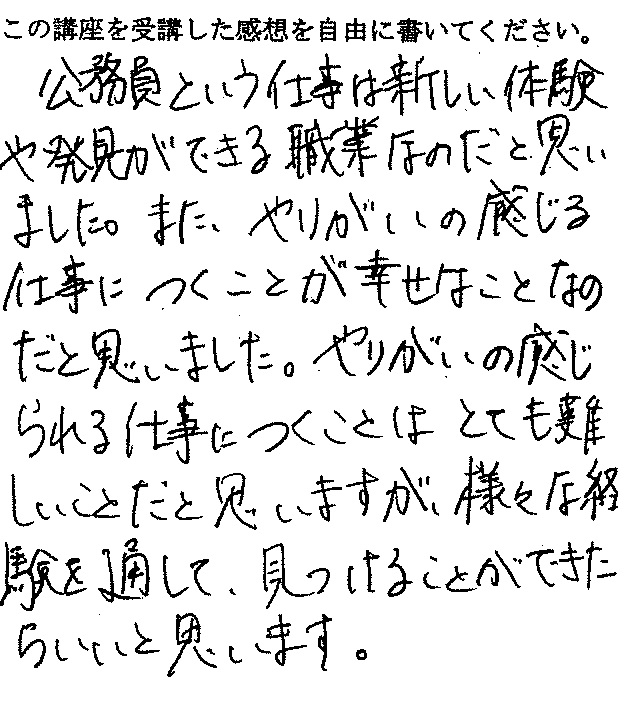 この講座を受講した感想を自由に書いてください。
公務員という仕事は新しい体験
や発見ができる職業なのだと思い
ました。また、やりがいの感じる
仕事につくことが幸せなことなの
だと思いました。やりがいの感じ
られる仕事につくことはとても難
しいことだと思いますが、様々な経
験を通して、見つけることができた
らいいと思います。